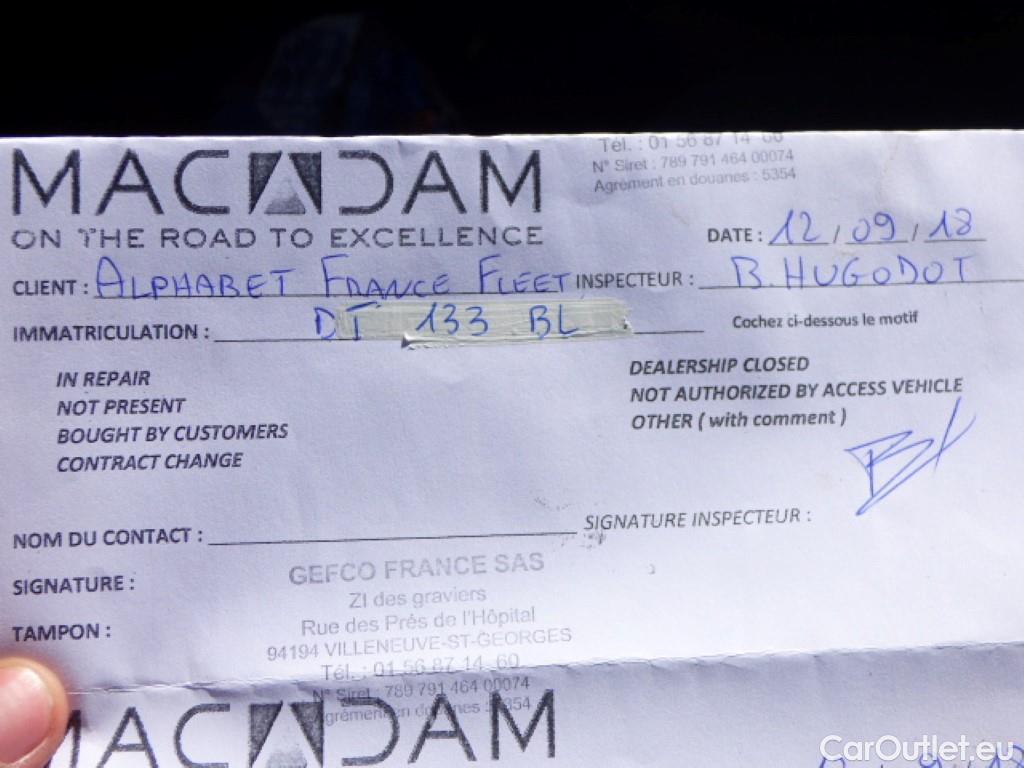 Tél. : 01 56 87 14 60
N° Siret : 789 791 464 00074
Agrément en douanes : 5354
MACADAM
ON THE ROAD TO EXCELLENCE
DATE : 12 / 09 / 18
CLIENT : ALPHABET FRANCE FLEET INSPECTEUR : B. HUGODOT
IMMATRICULATION : DT 133 BL Cochez ci-dessous le motif
IN REPAIR
NOT PRESENT
BOUGHT BY CUSTOMERS
CONTRACT CHANGE
DEALERSHIP CLOSED
NOT AUTHORIZED BY ACCESS VEHICLE
OTHER ( with comment )
NOM DU CONTACT : SIGNATURE INSPECTEUR :
SIGNATURE :
TAMPON :
GEFCO FRANCE SAS
ZI des graviers
Rue des Prés de l'Hôpital
94194 VILLENEUVE-ST-GEORGES
Tél. : 01 56 87 14 60
N° Siret : 789 791 464 00074
Agrément en douanes : 5354
MACADAM
CarOutlet.eu